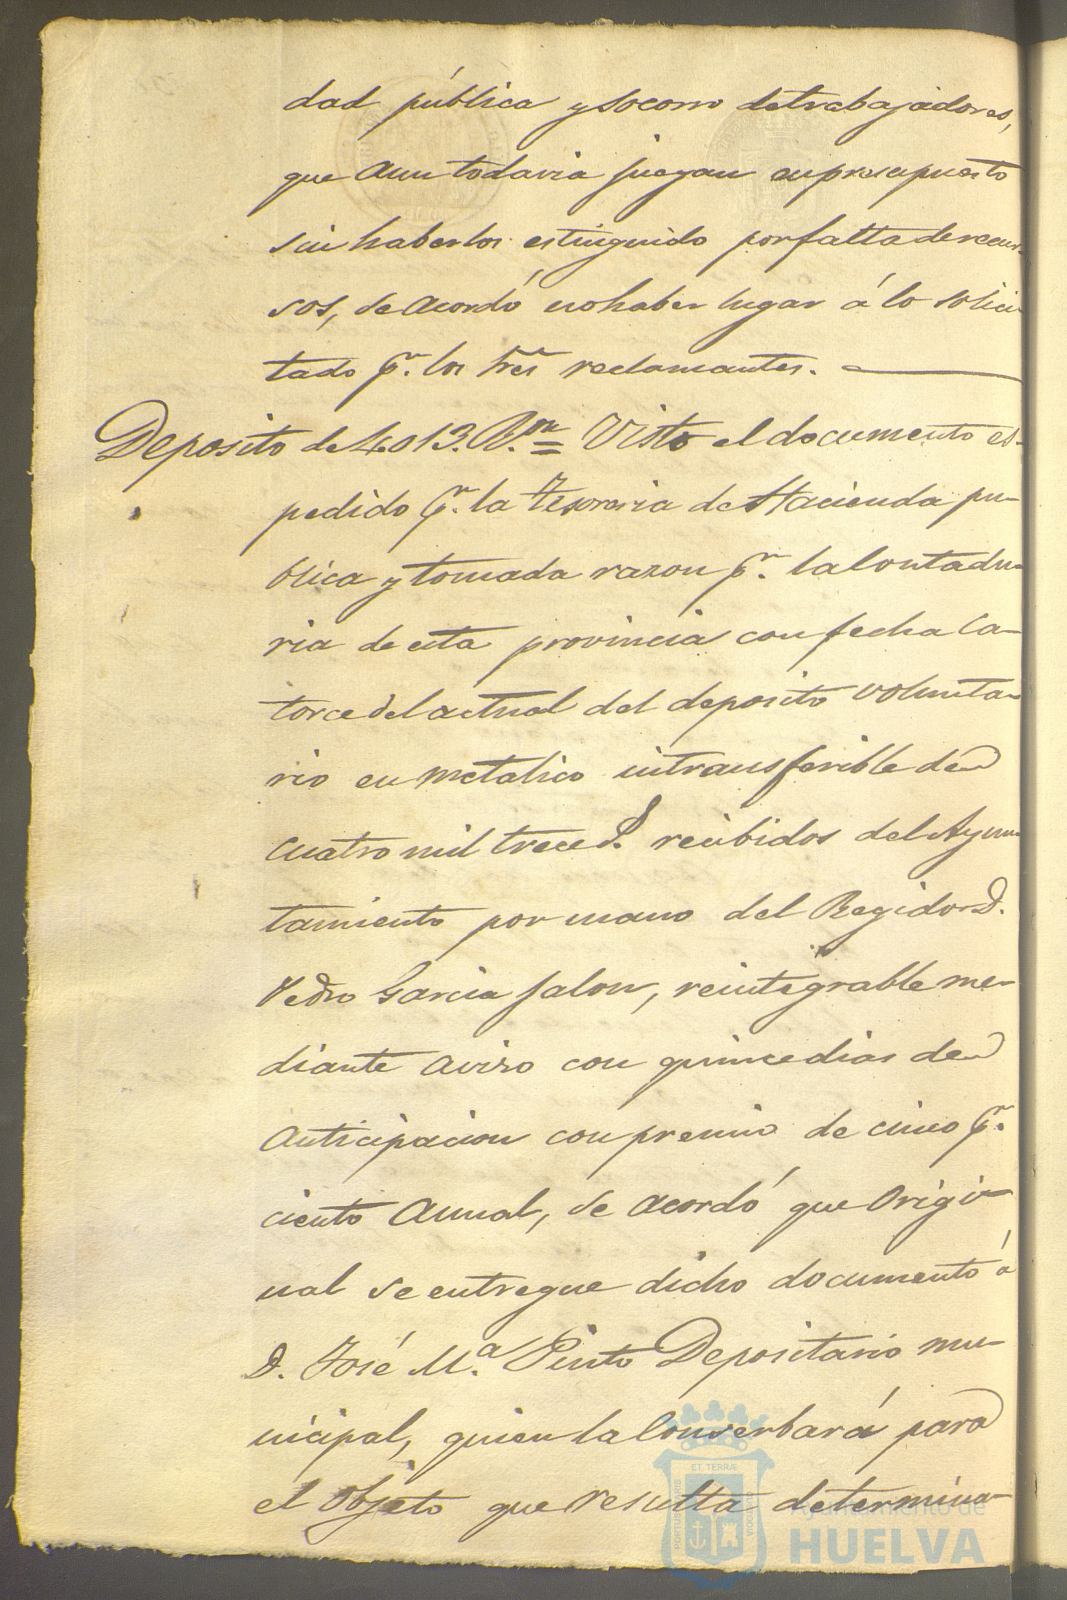 dad pública y socorro de trabajadores,
que aun todavia juegan en presupuesto
sin haberlos estinguido por falta de recur-
sos, se acordó no haber lugar á lo solici-
tado pr. los tres reclamantes.
Deposito de 4.013. Rn = Visto el documento es-
pedido pr. la Tesoreria de Hacienda pu-
blica y tomada razon pr. la Contadu-
ria de esta provincia con fecha ca-
torce del actual del deposito volunta-
rio en metalico intransferible de
cuatro mil trece rs. recibidos del Ayun-
tamiento por mano del Regidor D.
Pedro Garcia Jalon, reintegrable me-
diante aviso con quince dias de
anticipacion con premio de cinco pr.
ciento anual, se acordó que origi-
nal se entregue dicho documento á
D. José Ma. Pinto Depositario mu-
nicipal, quien la conserbará para
el objeto que resulta determina-
Ayuntamiento de
HUELVA